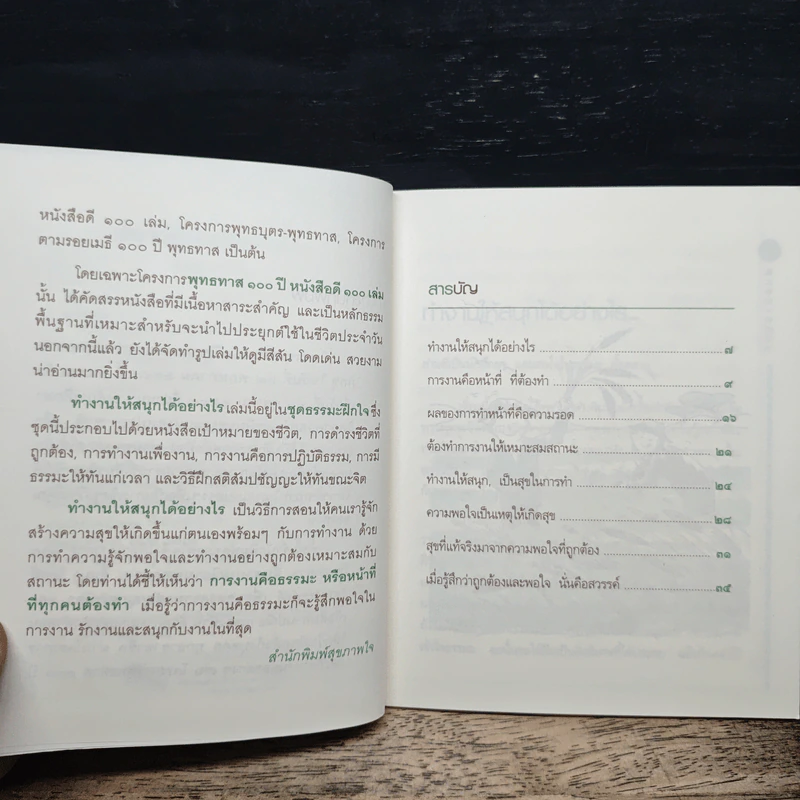 หนังสือดี ๑๐๐ เล่ม, โครงการพุทธบุตร-พุทธทาส, โครงการ
ตามรอยเมธี ๑๐๐ ปี พุทธทาส เป็นต้น
โดยเฉพาะโครงการพุทธทาส ๑๐๐ ปี หนังสือดี ๑๐๐ เล่ม
นั้น ได้คัดสรรหนังสือที่มีเนื้อหาสาระสำคัญ และเป็นหลักธรรม
พื้นฐานที่เหมาะสำหรับจะนำไปประยุกต์ใช้ในชีวิตประจำวัน
นอกจากนี้แล้ว ยังได้จัดทำรูปเล่มให้ดูมีสีสัน โดดเด่น สวยงาม
น่าอ่านมากยิ่งขึ้น
ทำงานให้สนุกได้อย่างไร เล่มนี้อยู่ในชุดธรรมะฝึกใจ ซึ่ง
ชุดนี้ประกอบไปด้วยหนังสือเป้าหมายของชีวิต, การดำรงชีวิตที่
ถูกต้อง, การทำงานเพื่องาน, การงานคือการปฏิบัติธรรม, การมี
ธรรมะให้ทันแก่เวลา และวิธีฝึกสติสัมปชัญญะให้ทันขณะจิต
ทำงานให้สนุกได้อย่างไร เป็นวิธีการสอนให้คนเรารู้จัก
สร้างความสุขให้เกิดขึ้นแก่ตนเองพร้อมๆ กับการทำงาน ด้วย
การทำความรู้จักพอใจและทำงานอย่างถูกต้องเหมาะสมกับ
สถานะ โดยท่านได้ชี้ให้เห็นว่า การงานคือธรรมะ หรือหน้าที่
ที่ทุกคนต้องทำ เมื่อรู้ว่าการงานคือธรรมะก็จะรู้สึกพอใจใน
การงาน รักงานและสนุกกับงานในที่สุด
สำนักพิมพ์สุขภาพใจ
สารบัญ
ทำงานให้สนุกได้อย่างไร ๗
การงานคือหน้าที่ ที่ต้องทำ ๙
ผลของการทำหน้าที่คือความรอด ๑๖
ต้องทำการงานให้เหมาะสมสถานะ ๒๑
ทำงานให้สนุก, เป็นสุขในการทำ ๒๔
ความพอใจเป็นเหตุให้เกิดสุข ๒๘
สุขที่แท้จริงมาจากความพอใจที่ถูกต้อง ๓๑
เมื่อรู้สึกว่าถูกต้องและพอใจ นั่นคือสวรรค์ ๓๕